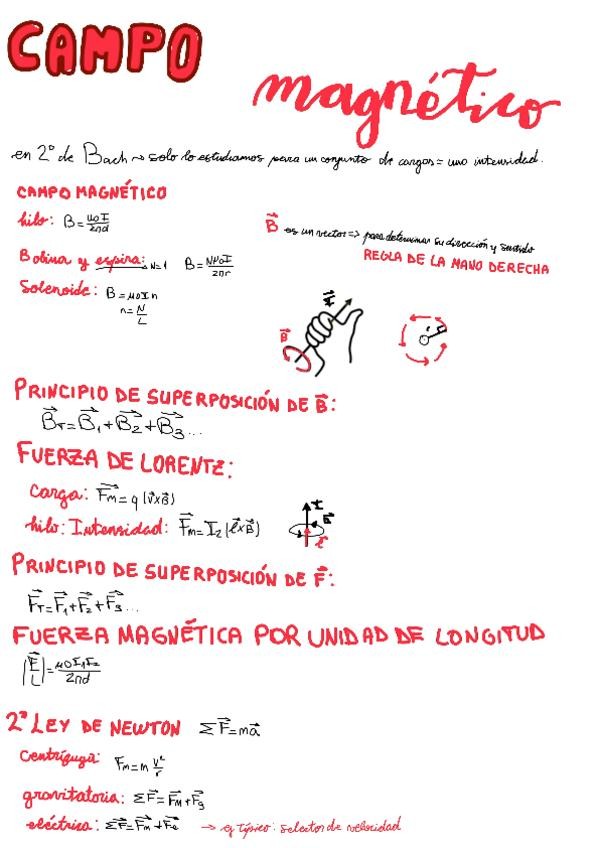 CAMPO
magnético
en 2º de Bach → solo lo estudiamos para un conjunto de cargas = una intensidad.
CAMPO MAGNÉTICO
hilo: B = μ0I/2πd
B⃗ es un vector => para determinar su dirección y sentido
REGLA DE LA MANO DERECHA
Bobina y espira: → N=1 B = Nμ0I/2πr
Solenoide: B = μ0In
n = N/L
I⃗
B⃗
r
PRINCIPIO DE SUPERPOSICIÓN DE B⃗:
B⃗T = B⃗1 + B⃗2 + B⃗3...
FUERZA DE LORENTZ:
carga: F⃗m = q (v⃗xB⃗)
hilo: Intensidad: F⃗m = I2 (l⃗xB⃗)
I
B⃗
PRINCIPIO DE SUPERPOSICIÓN DE F⃗:
F⃗T = F⃗1 + F⃗2 + F⃗3...
FUERZA MAGNÉTICA POR UNIDAD DE LONGITUD
|F⃗/L| = μ0I1I2/2πd
2ª LEY DE NEWTON ΣF⃗ = ma⃗
Centrífuga: Fm = m v²/r
gravitatoria: ΣF⃗ = F⃗M + F⃗g
eléctrica: ΣF⃗ = F⃗m + F⃗e → ej típico: selector de velocidad